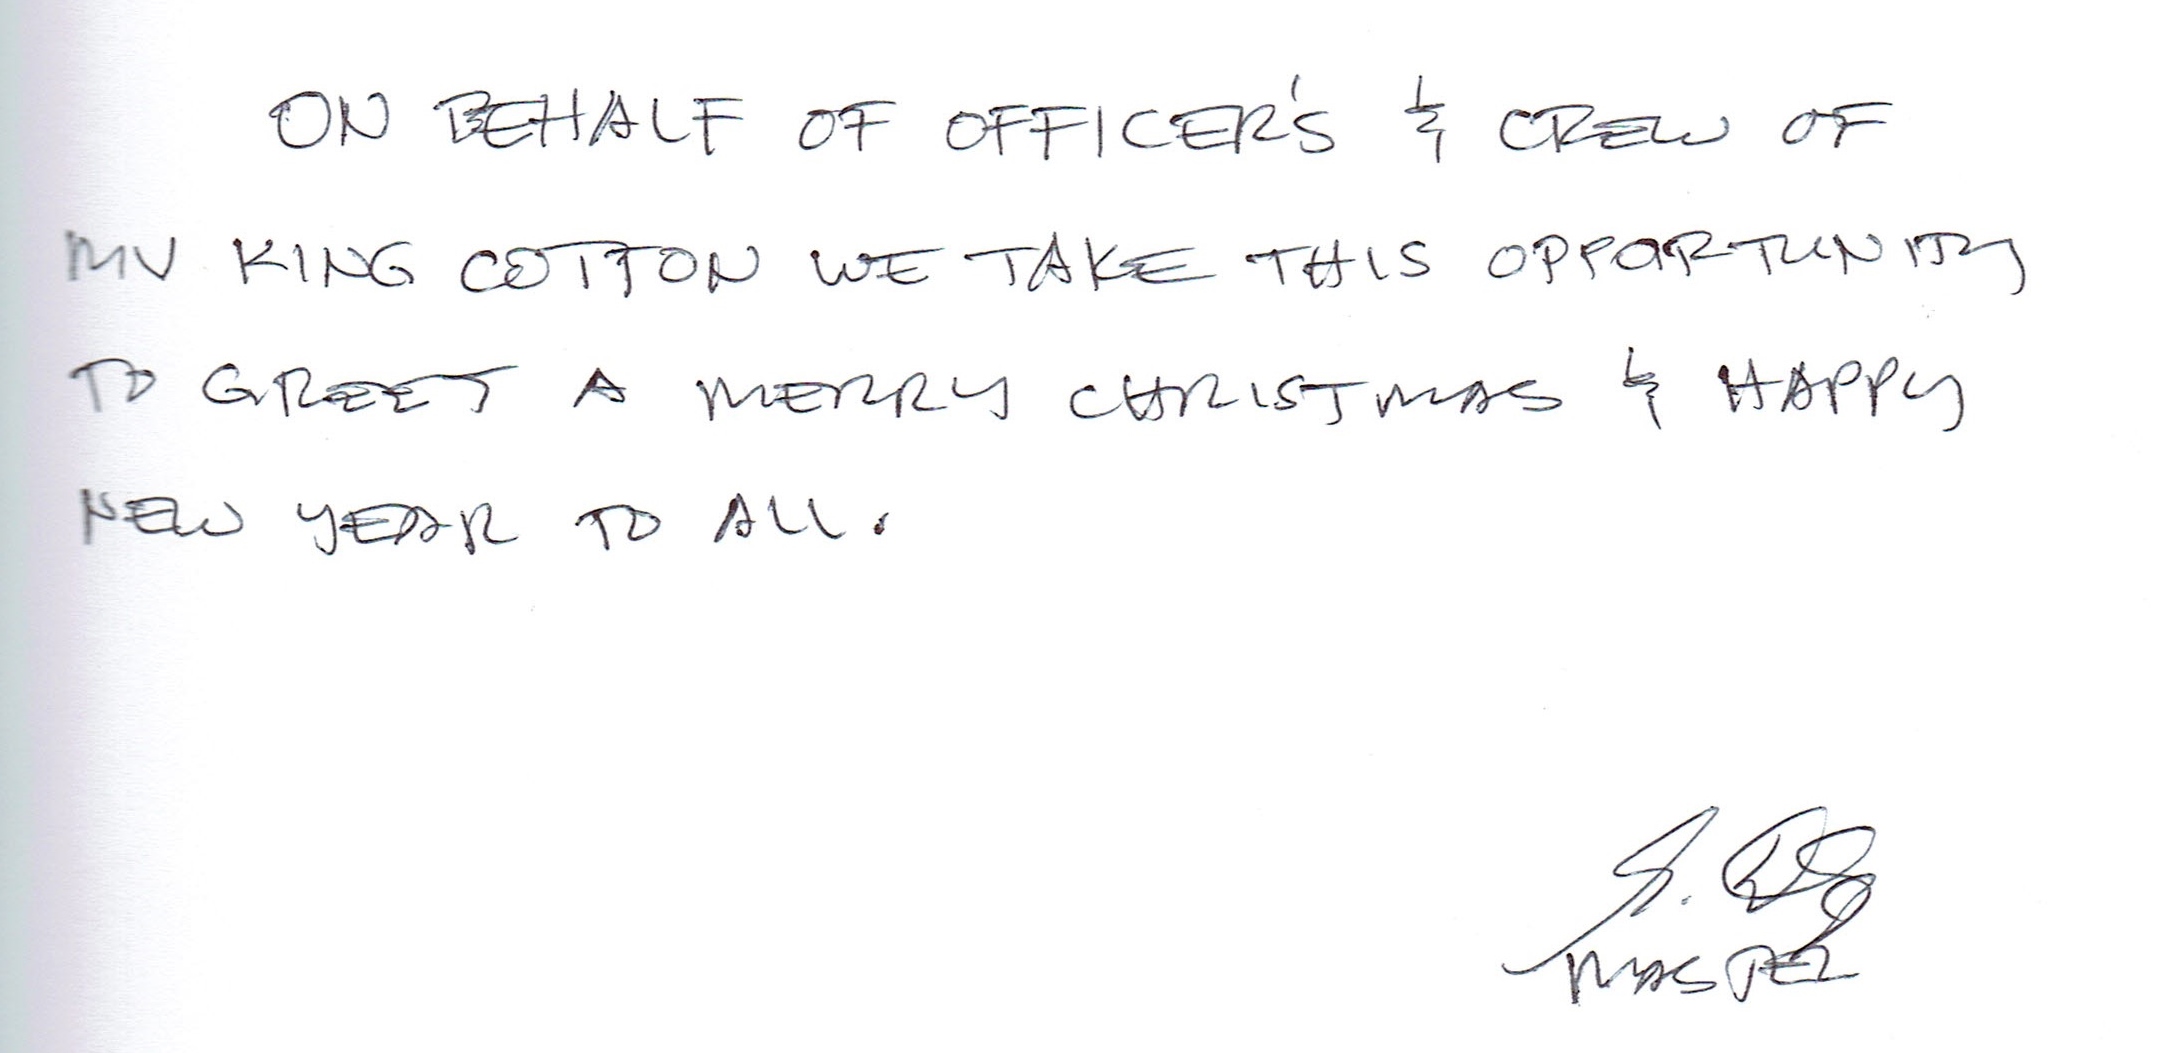 ON BEHALF OF OFFICER'S & CREW OF
MV KING COTTON WE TAKE THIS OPPORTUNITY
TO GREET A MERRY CHRISTMAS & HAPPY
NEW YEAR TO ALL.
MASTER